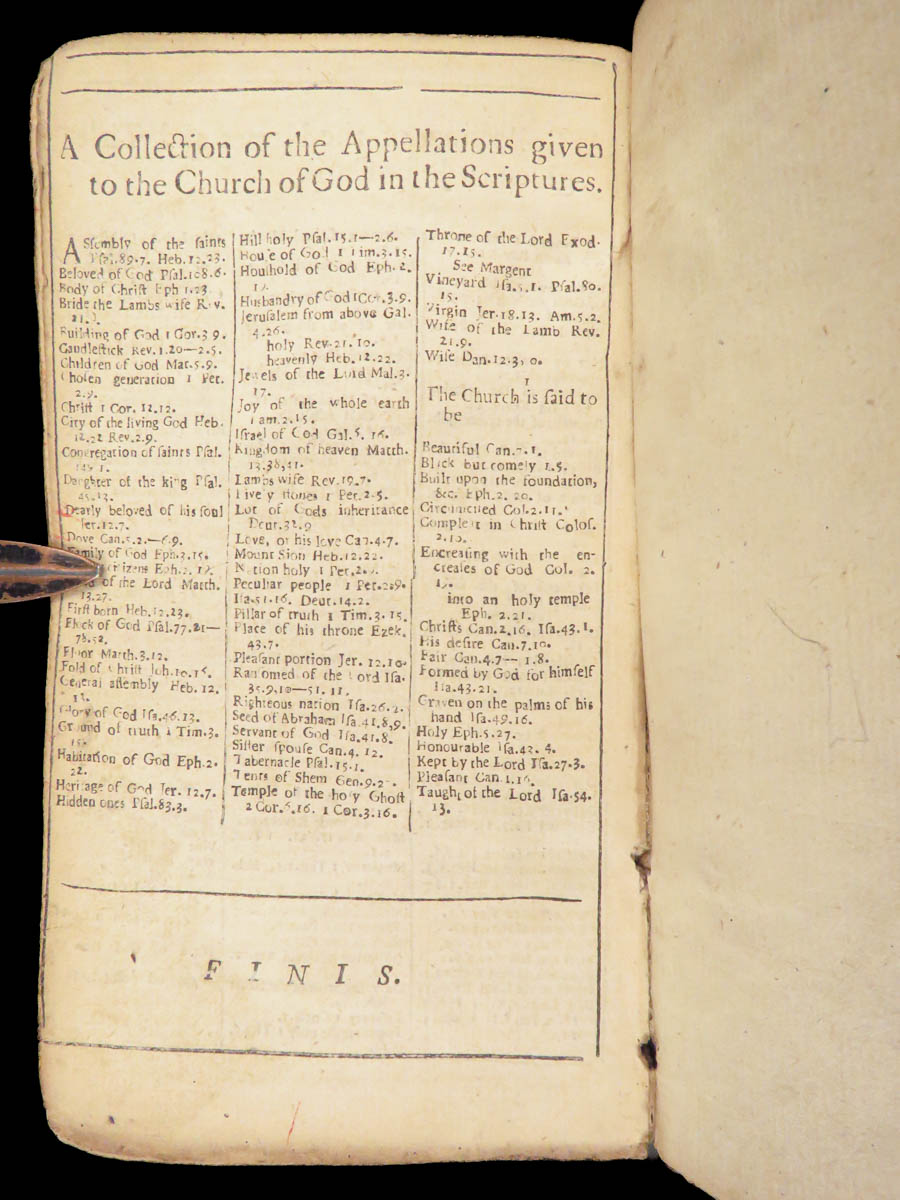 A Collection of the Appellations given
to the Church of God in the Scriptures.
ASsembly of the ſaints
Pſal.89.7. Heb.12.23.
Beloved of God Pſal.108.6.
Body of Chriſt Eph 1.23
Bride the Lambs wife Rev.
21.
Building of God 1 Cor.3 9.
Candleſtick Rev.1.20—2.5.
Children of God Mat.5.9.
Choſen generation 1 Pet.
2.9.
Chriſt 1 Cor. 12.12.
City of the living God Heb.
12.22 Rev.2.9.
Congregation of ſaints Pſal.
149 1.
Daughter of the king Pſal.
45.13.
Dearly beloved of his ſoul
Jer.12.7.
Dove Can.5.2.—6.9.
Family of God Eph.3.15.
Eph.2.
of the Lord Matth.
13.27.
Firſt born Heb.12.23.
Flock of God Pſal.77.21—
78.52.
Floor Matth.3.12.
Fold of Chriſt Joh.10.16.
General aſſembly Heb. 12.
Glory of God Iſa.46.13.
Ground of truth 1 Tim.3.
15.
Habitation of God Eph.2.
22.
Heritage of God Jer. 12.7.
Hidden ones Pſal.83.3.
Hill holy Pſal.15.1—2.6.
Houſe of God 1 Tim.3.15.
Houſhold of God Eph.2.
Husbandry of God 1Cor.3.9.
Jeruſalem from above Gal.
4.26.
holy Rev.21.10.
heavenly Heb.12.22.
Jewels of the Lord Mal.3.
17.
Joy of the whole earth
Lam.2.15.
Iſrael of God Gal.6. 16.
Kingdom of heaven Matth.
13.38,41.
Lambs wife Rev.19.7.
Lively ſtones 1 Pet.2.5.
Lot of Gods inheritance
Deut.32.9
Love, or his love Can.4.7.
Mount Sion Heb.12.22.
Nation holy 1 Pet.2.9.
Peculiar people 1 Pet.2.9.
Iſa.51.16. Deut.14.2.
Pillar of truth 1 Tim.3.15.
Place of his throne Ezek.
43.7.
Pleaſant portion Jer. 12.10.
Ranſomed of the Lord Iſa.
35.9,10—51. 11.
Righteous nation Iſa.26.2.
Seed of Abraham Iſa.41.8,9.
Servant of God Iſa.41.8.
Siſter ſpouſe Can.4. 12.
Tabernacle Pſal.15.1.
Tents of Shem Gen.9.2
Temple of the holy Ghoſt
2 Cor.6.16. 1 Cor.3.16.
Throne of the Lord Exod.
17.15.
See Margent
Vineyard Iſa.5.1. Pſal.80.
15.
Virgin Jer.18.13. Am.5.2.
Wife of the Lamb Rev.
21.9.
Wiſe Dan.12.3,
The Church is ſaid to
be
Beautiful Can.7.1.
Black but comely 1.5.
Built upon the foundation,
&c. Eph.2. 20.
Circumciſed Col.2.11.
Compleat in Chriſt Coloſ.
2.10.
Encreaſing with the en-
creaſes of God Col. 2.
19.
into an holy temple
Eph. 2.21.
Chriſts Can.2.16. Iſa.43.1.
His deſire Can.7.10.
Fair Can.4.7— 1.8.
Formed by God for himſelf
Iſa.43.21.
Graven on the palms of his
hand Iſa.49.16.
Holy Eph.5.27.
Honourable Iſa.43. 4.
Kept by the Lord Iſa.27.3.
Pleaſant Can.1.16.
Taught of the Lord Iſa.54.
13.
FINIS.